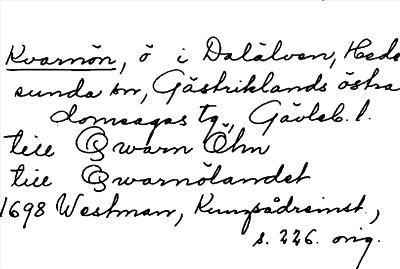 Kvarnön, ö i Dalälven, Heds
sunda sn, Gästriklands östra
domsagas tg., Gävleb. l.
till Qwarn Öhn
till Qwarnölandet
1698 Westman, Kungsådreinst.,
s. 226. orig.